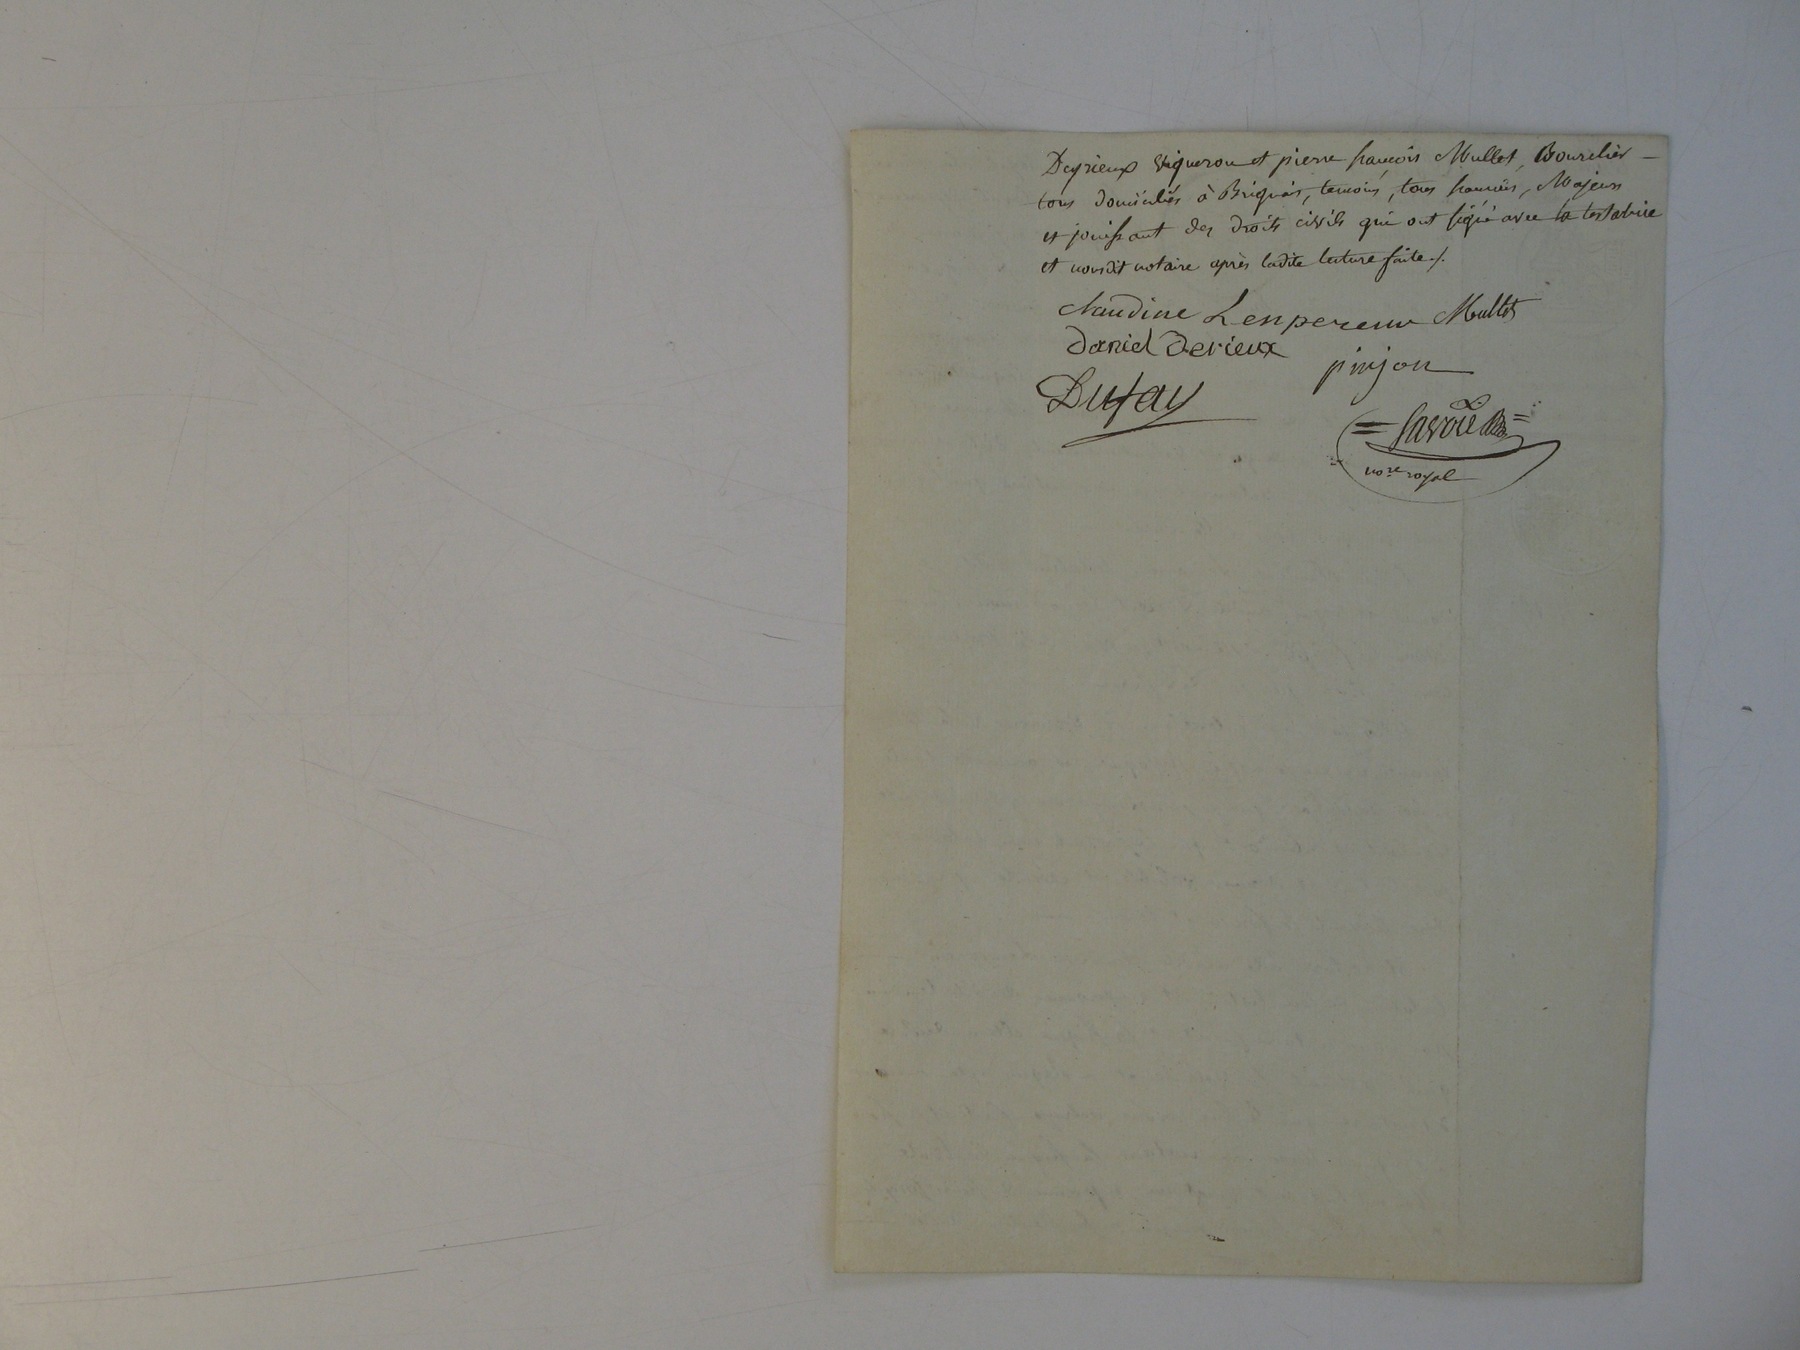 Deyrieux Vigneron et pierre françois Mullet, Bourelier —
tous domiciliés à Brignais, temoins, tous francais, Majeurs
et jouissant des droits civils qui ont signé avec la testatrice
et nousdit notaire après ladite lecture faite ./.
claudine Lenpereur Mullet
daniel Derieux
pinjon
Dufay
no.re royal